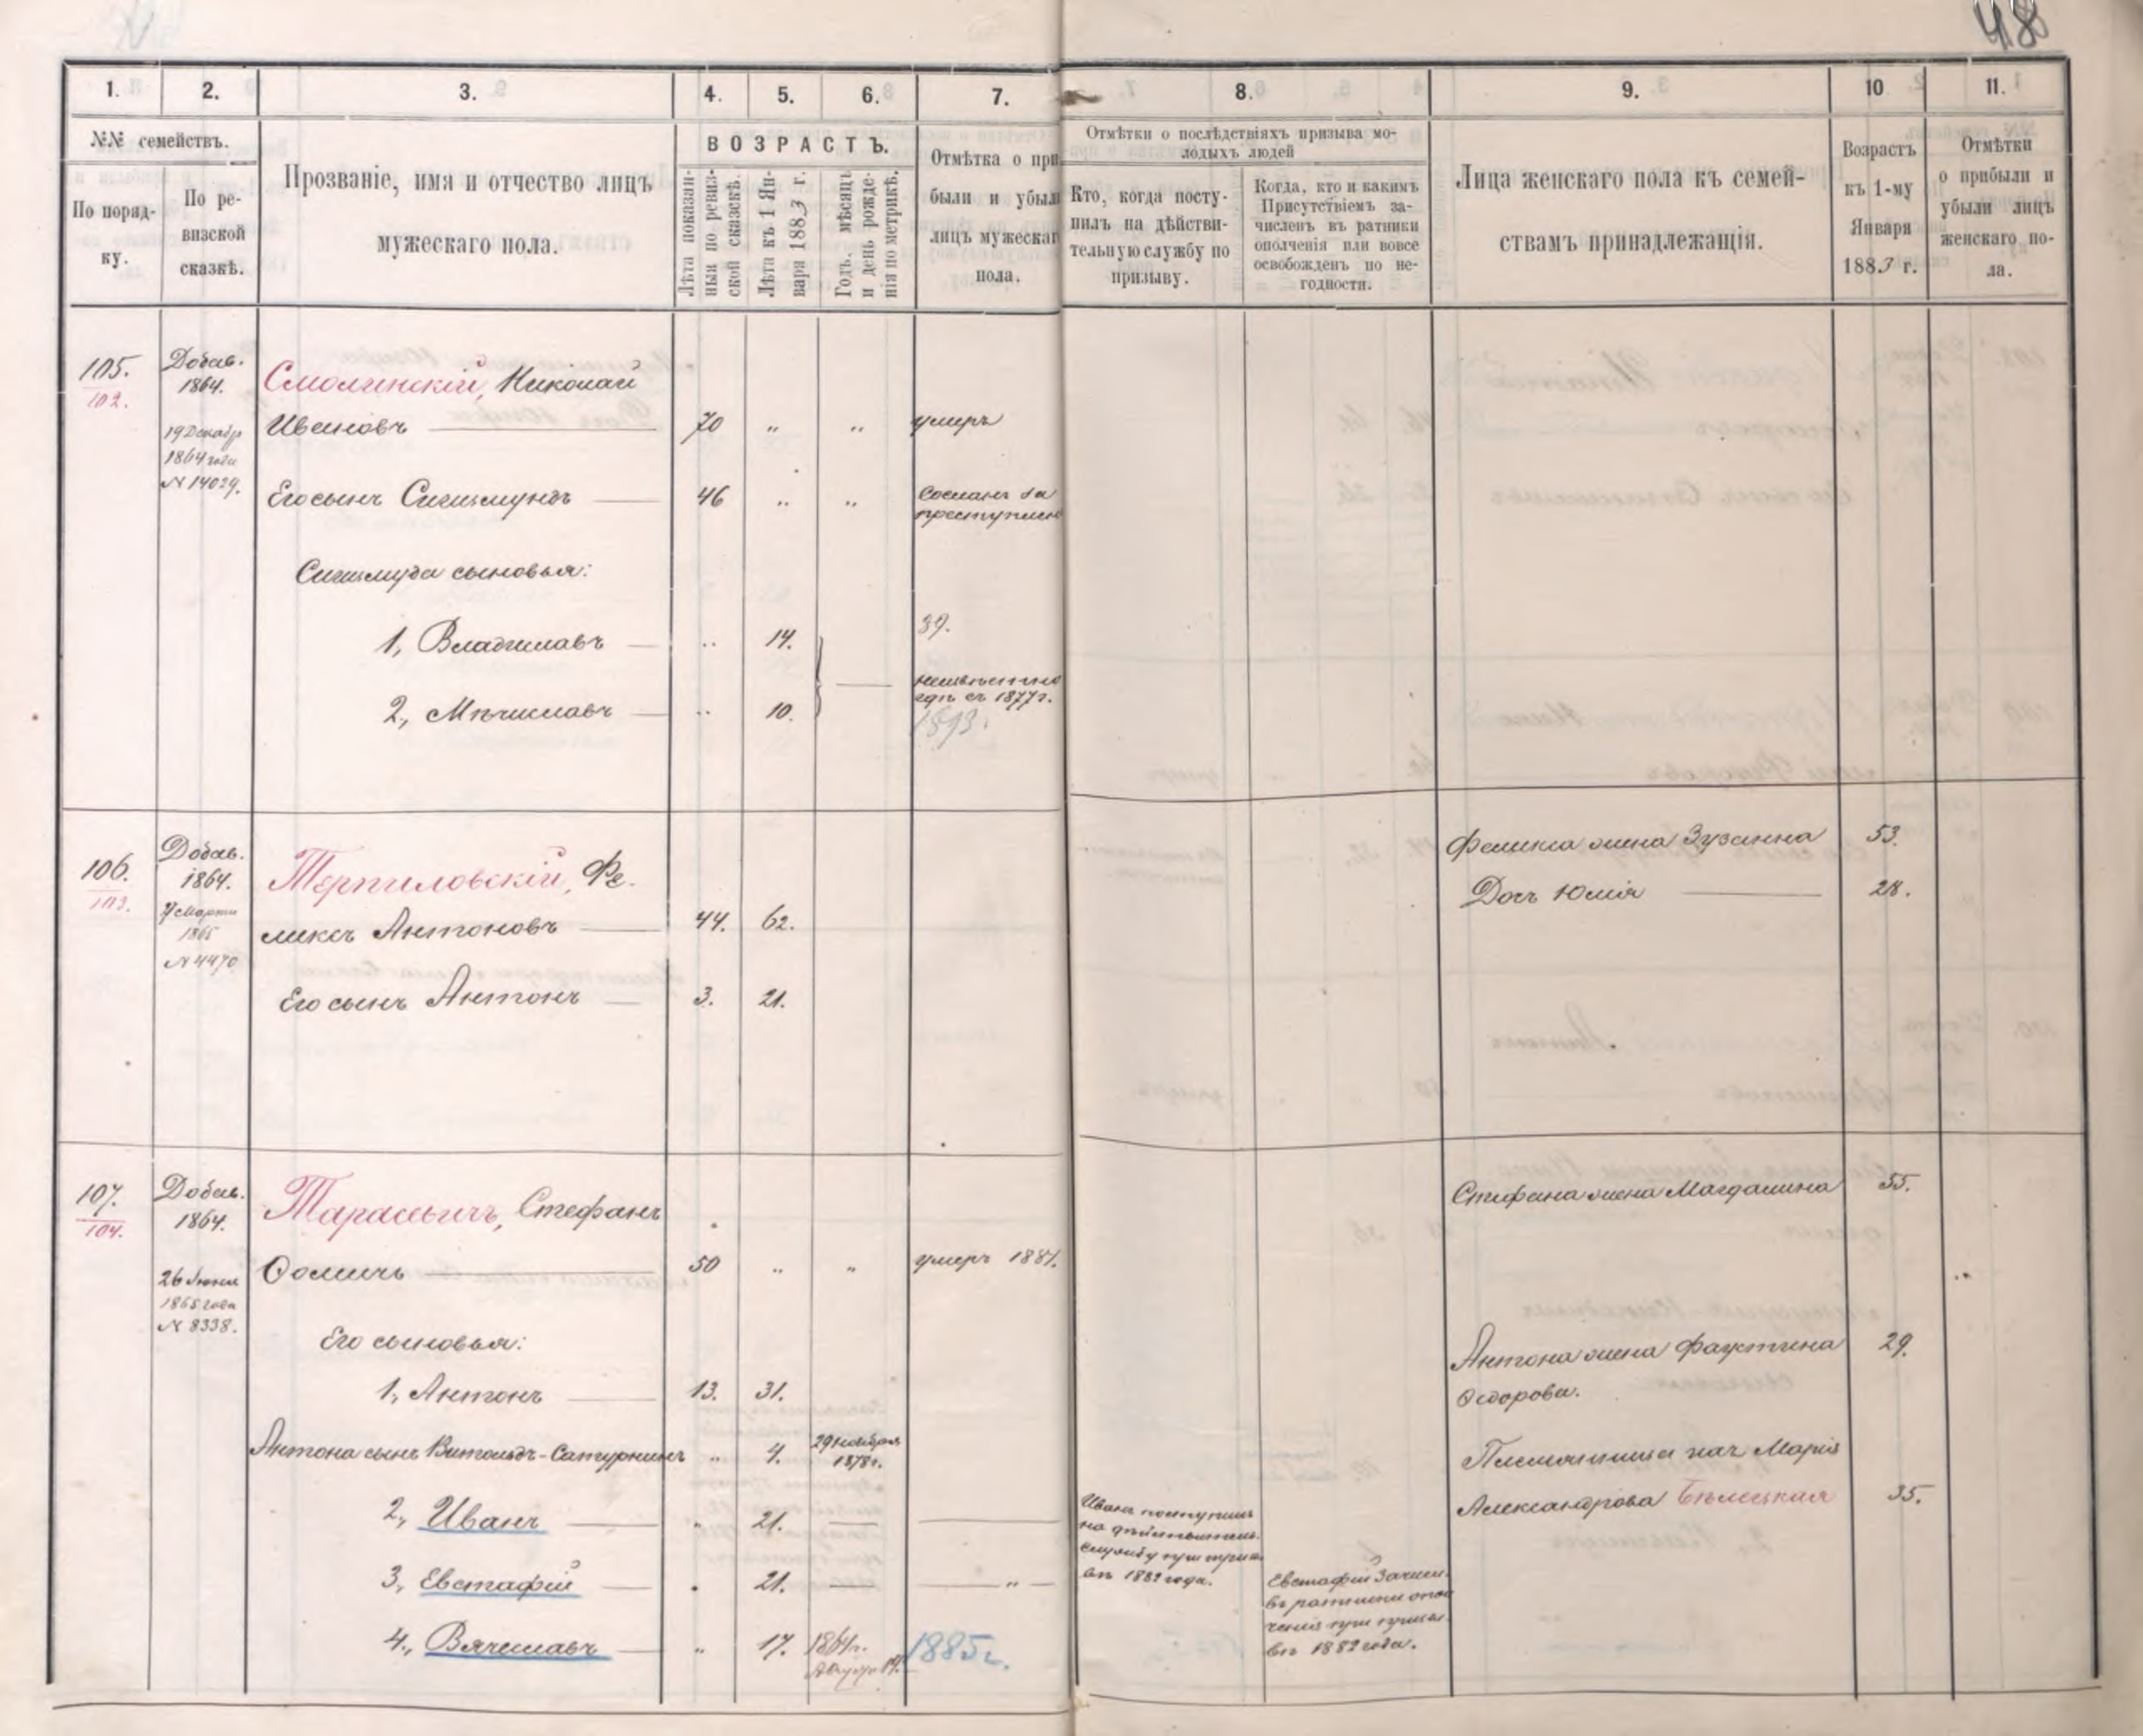 48
1. 2. 3. 4. 5. 6. 7. 8. 9. 10 11.
№№ семействъ.
По поряд-
ку.
По ре-
визской
сказкѣ.
Прозваніе, имя и отчество лицъ
мужескаго пола.
ВОЗРАСТЪ.
Лѣта показан-
ныя по ревиз-
ской сказкѣ.
Лѣта къ 1 Ян-
варя 1883 г.
Годъ, мѣсяцъ
и день рожде-
нія по метрикѣ.
Отмѣтка о при
были и убыл
лицъ мужескаг
пола.
Отмѣтки о послѣдствіяхъ призыва мо-
лодыхъ людей
Кто, когда посту-
пилъ на дѣйстви-
тельную службу по
призыву.
Когда, кто и какимъ
Присутствіемъ за-
численъ въ ратники
ополченія или вовсе
освобожденъ по не-
годности.
Лица женскаго пола къ семей-
ствамъ принадлежащія.
Возрастъ
къ 1-му
Января
1883 г.
Отмѣтки
о прибыли и
убыли лицъ
женскаго по-
ла.
105.
102.
Добав.
1864.
19 Декабр
1864 года
N 14029.
Смолинскій, Николай
Ивановъ 70 „ „ умеръ
Его сынъ Сигизмундъ 46 „ „ Сосланъ за
преступлен
Сигизмуда сыновья:
1, Владиславъ „ 14. 39.
неизвѣстно
гдѣ съ 1877 г.
2, Мѣчиславъ „ 10.
1893.
106.
103.
Добав.
1864.
7 Марта
1865
N 4470
Терпиловскій, Фе-
ликсъ Антоновъ 44. 62.
Его сынъ Антонъ 3. 21.
Феликса жена Зузанна 53.
Дочь Юлія 28.
107.
104.
Добав.
1864.
26 Іюня
1865 года
N 8338.
Тарасевичъ, Стефанъ
Ѳоминъ 50 „ „ умеръ 1881.
Его сыновья:
1, Антонъ 13. 31.
Антона сынъ Витольдъ-Сатурнинъ „ 4. 29 Ноября
1878 г.
2, Иванъ „ 21.
3, Евстафій „ 21. „
4, Вячеславъ „ 17. 1864 г.
Августа 14. 1885 г.
Иванъ поступилъ
на дѣйствительн.
службу при призы
въ 1882 года.
Евстафій Зачисл.
въ ратники опол
ченія при призы
въ 1882 года.
Стефана жена Магдалина 55.
Антона жена Фаустина 29.
Ѳедорова.
Племянница ихъ Марія
Александрова Бѣлецкая 35.